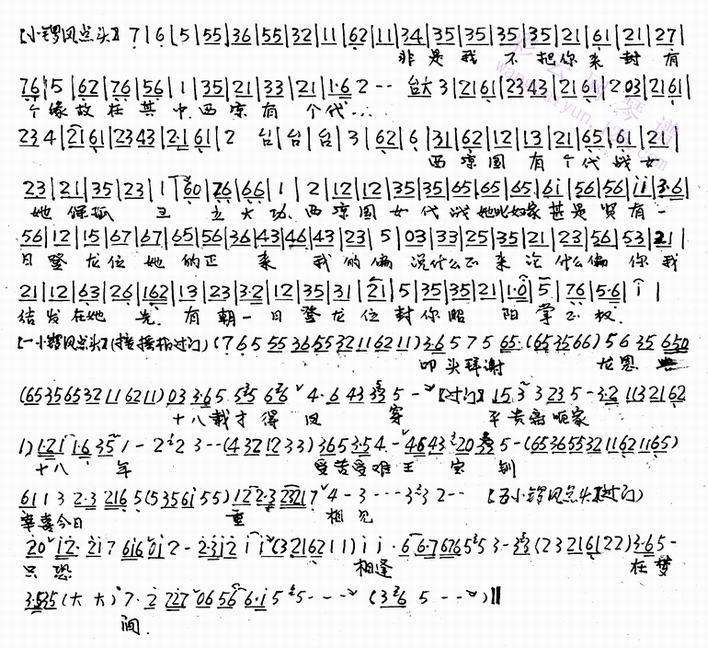 【小锣凤点头】 7 | 6 | 5 | 55 | 36 | 55 | 32 | 11 | 62 | 11 | 34 | 35 | 35 | 35 | 35 | 21 | 61 | 21 | 27 |
非 是 我 不 把 你 来 封 有
76 | 5 | 62 | 76 | 56 | 1 | 35 | 21 | 33 | 21 | 1·6 2 -- 台大 3 | 2161 | 2343 | 2161 | 2 03 | 2161 |
个 缘 故 在 其 中 西 凉 有 个 代...
23 4 | 2161 | 2343 | 2·1 61 | 2 台 | 台 | 台 | 3 | 62 | 6 | 31 | 62 | 12 | 13 | 21 | 65 | 61 | 21 |
西 凉 国 有 个 代 战 女
23 | 21 | 35 | 23 | 1 | 60 | 76 | 66 | 1 | 2 | 12 | 12 | 35 | 35 | 65 | 65 | 65 | 6i | 56 | 56 | ii | 3·6 |
她 保 孤 王 立 大 功 西 凉 国 女 代 战 她 比 奴家 甚 是 贤 有 一
56 | 12 | 15 | 67 | 67 | 65 | 56 | 36 | 43 | 46 | 43 | 23 | 5 | 03 | 33 | 25 | 35 | 21 | 23 | 56 | 53 | 21 |
日 登 龙 位 她 的 正 来 我 的 偏 说什么正 来 论 什么偏 你 我
21 | 12 | 63 | 26 | 162 | 13 | 23 | 3·2 | 12 | 35 | 31 | 21 | 5 | 35 | 35 | 21 | 1·0 | 5 | 76 | 5·6 | i |
结 发 在 她 先 有 朝 一 日 登 龙 位 封 你 昭 阳 掌 正 权
【一小锣凤点头】(接接相过门) (765 553655321162 11) 3·6 5 7 5 65· (6535 66) 5 6 35 650
叩 头 拜谢 龙恩
(65356532 11 62 11) 03 3·65· 535 626 4·6 43 335 5 - 【过门】 15 3 3 23 5 - 3·2 1132162
十八载才 得 凤 穿 平 贵 离 咱家
1) 1·21 1·6 35 1 - 2 2 3 -- (4 32 12 33) 365 3·5 4· - 4643 20 335 5 - (6536553211621165)
十八 年 受苦受难 王 宝 钏
61 1 3 2·3 216 5 (5356i 55) 12 2·3 2321 7 4 - 3 --- 3 3 2 -- 【五小锣凤点头】过门)
幸喜今日 重 相见
20 i2· 2i7 6i6 0i 2 - 2·3i2 i i (3216211) ii · 6 6·7 6765 5 3 - 33 (2 32161 22) 3·65 -
只 恐 相逢 在 梦
3·535 (大 大) 7· 2 727 065 56 6·i 5 5 ---- (3 26 5 ---) ||
间.